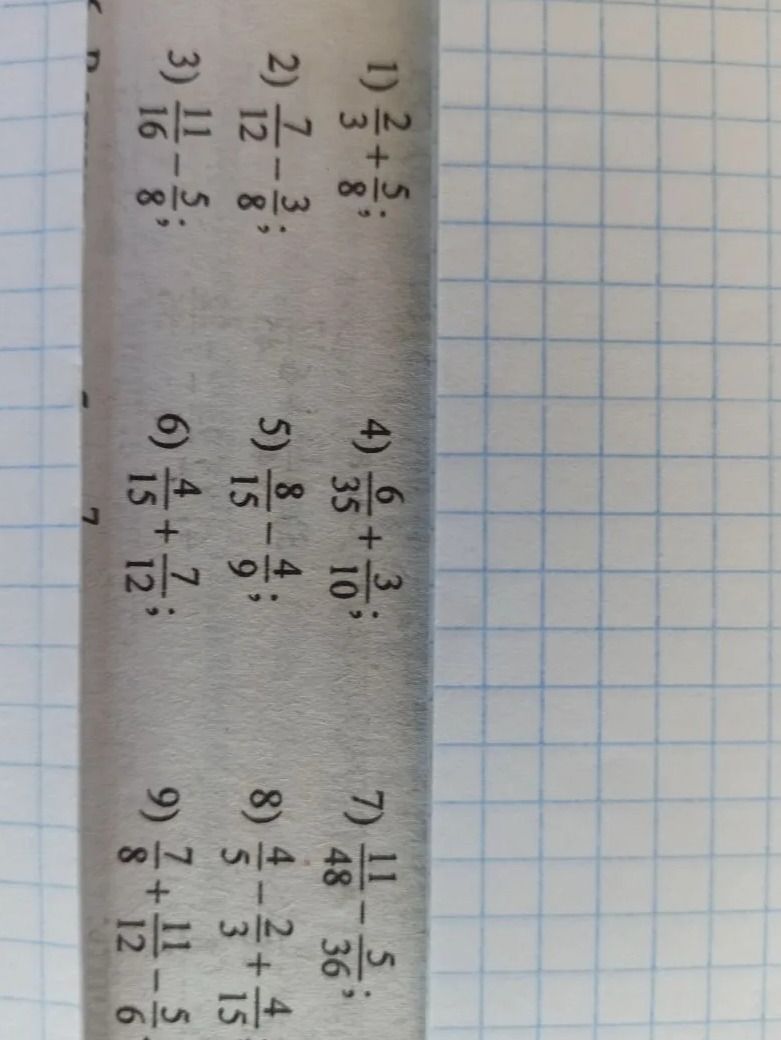 1) 2/3 + 5/8;
2) 7/12 − 3/8;
3) 11/16 − 5/8;
4) 6/35 + 3/10;
5) 8/15 − 4/9;
6) 4/15 + 7/12;
7) 11/48 − 5/36;
8) 4/5 − 2/3 + 4/15
9) 7/8 + 11/12 − 5/6
7